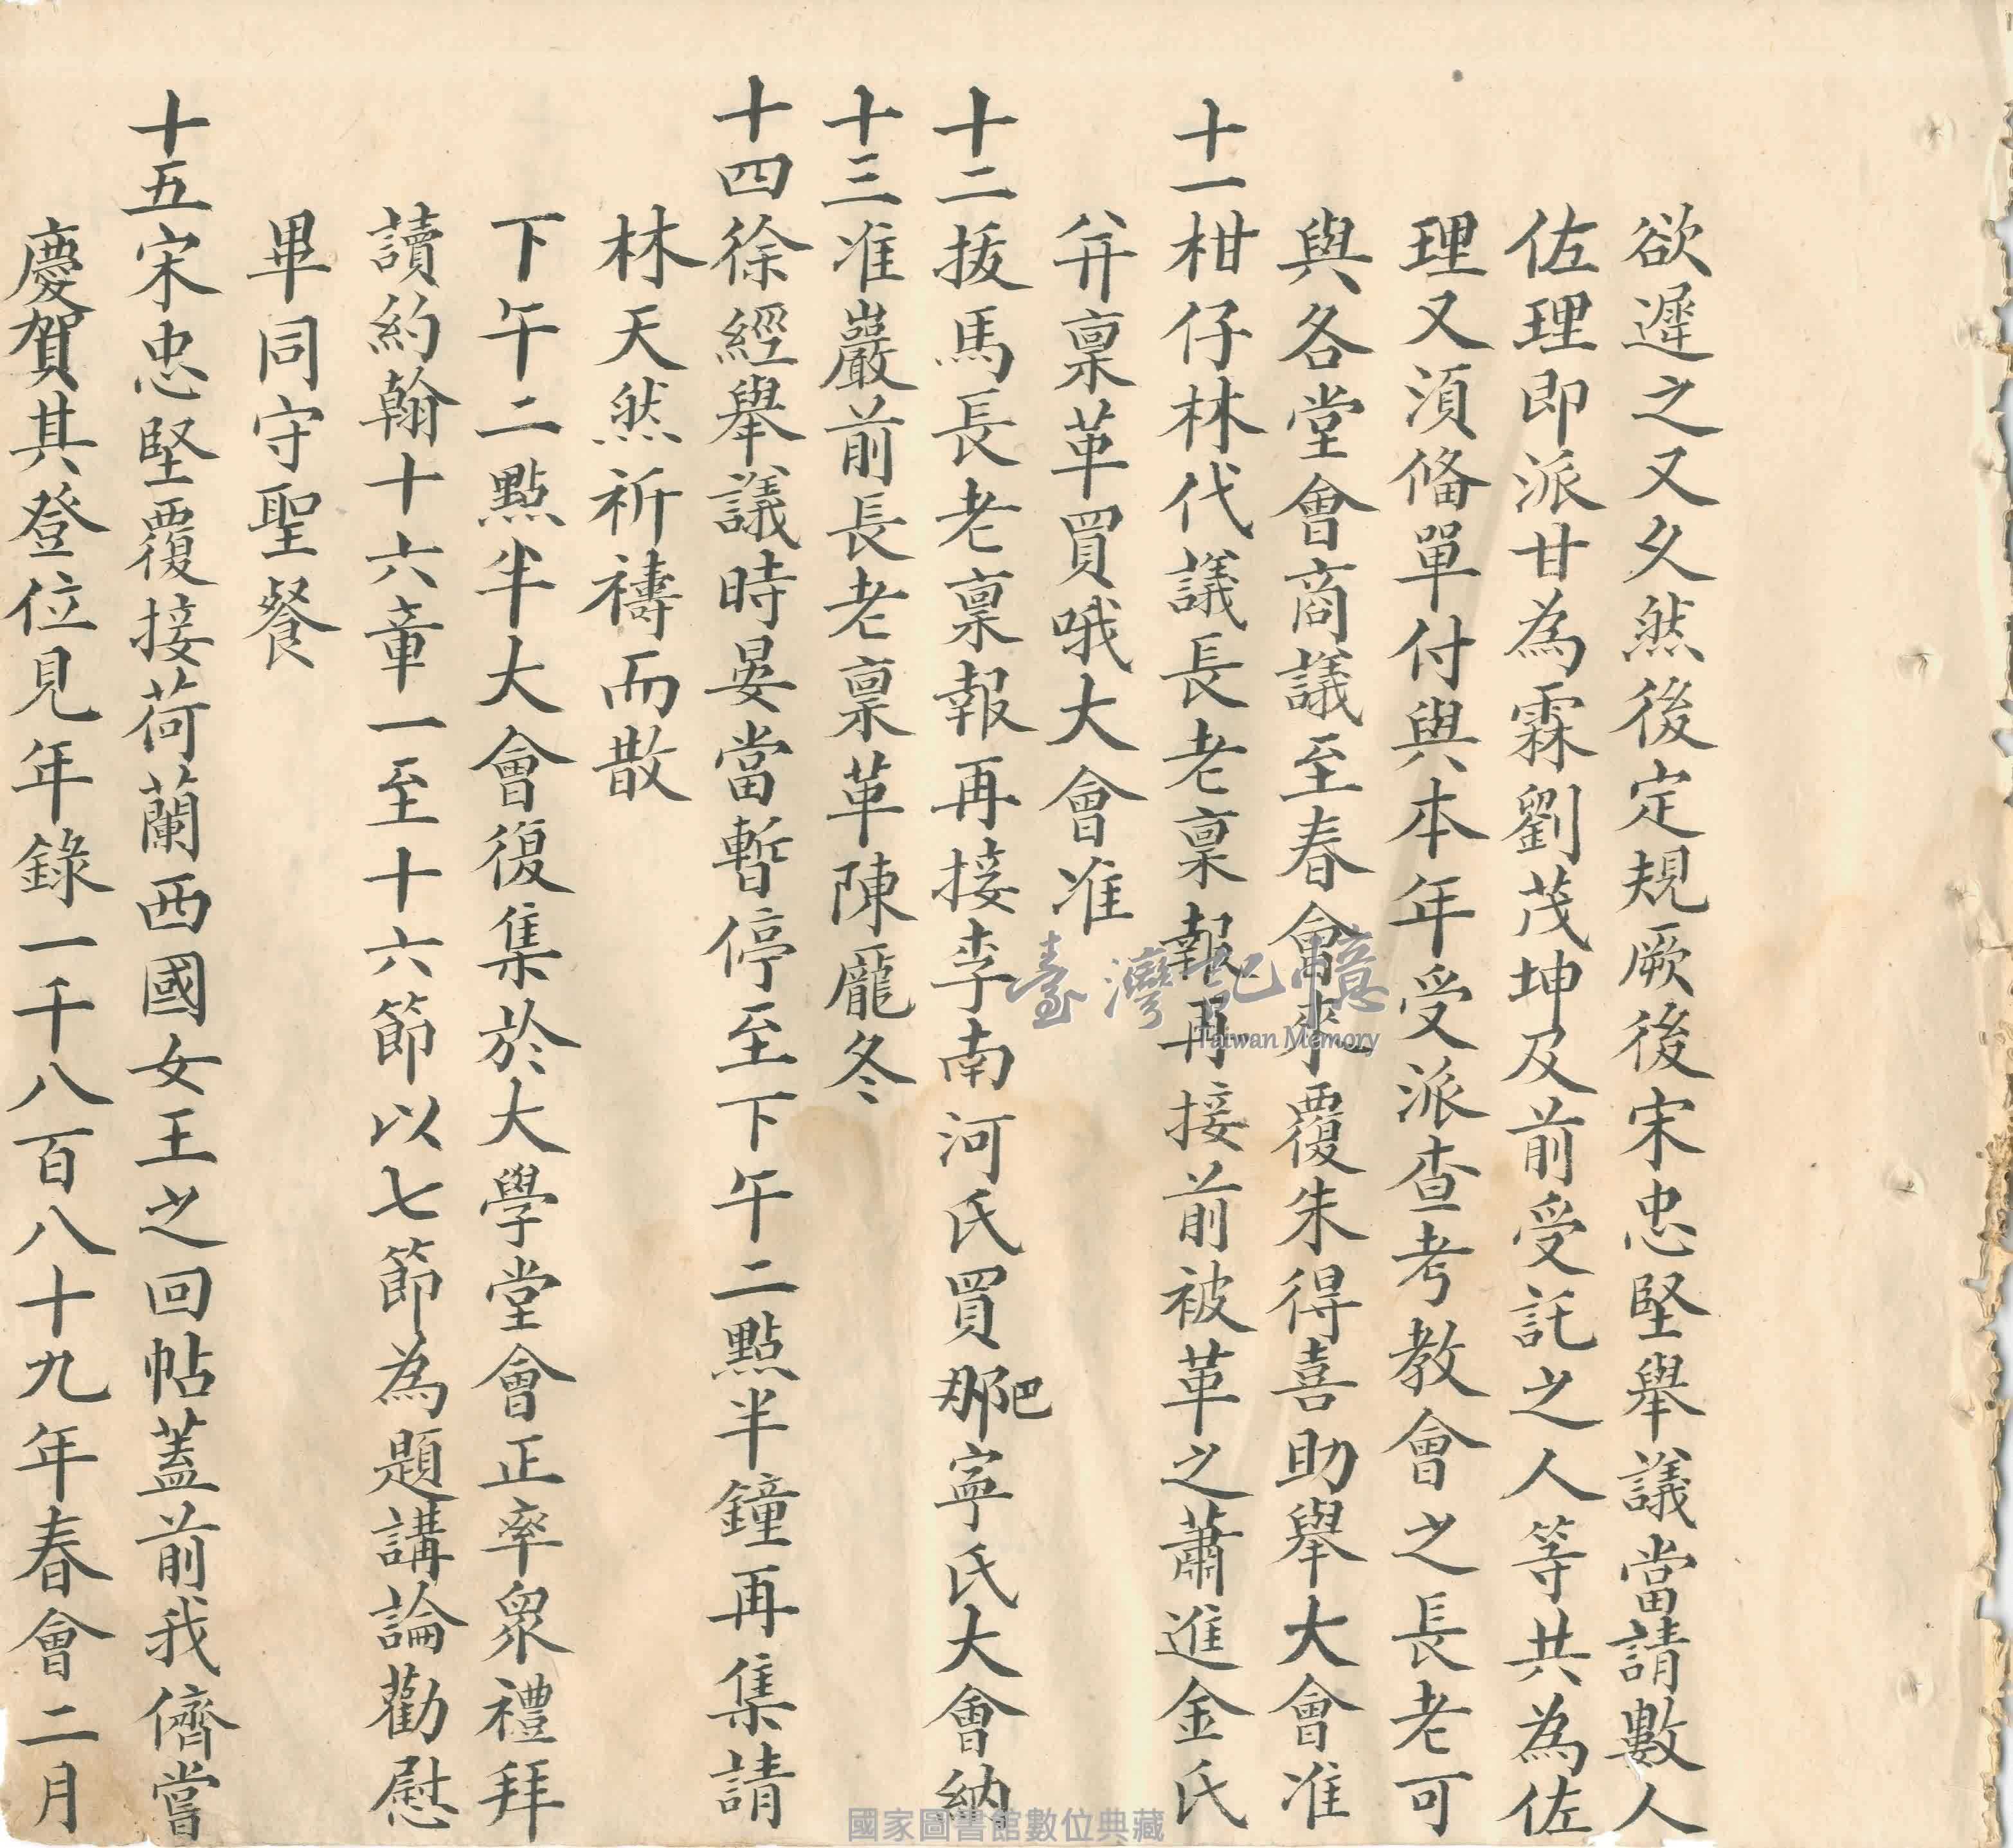 欲遲之又久然後定規厥後宋忠堅舉議當請數人
佐理即派甘為霖劉茂坤及前受託之人等共為佐
理又須俻單付與本年受派查考教會之長老可
與各堂會商議至春會來覆朱得喜助舉大會准
十一柑仔林代議長老稟報再接前被革之蕭進金氏
并稟革買哦大會准
十二拔馬長老稟報再接李南河氏買那吧寜氏大會納
十三准巖前長老稟革陳龐冬
十四徐經舉議時晏當暫停至下午二點半鐘再集請
林天然祈禱而散
下午二點半大會復集於大學堂會正率眾禮拜
讀約翰十六章一至十六節以七節為題講論勸慰
畢同守聖餐
十五宋忠堅覆接荷蘭西國女王之回帖蓋前我儕嘗
慶賀其登位見年錄一千八百八十九年春會二月
臺灣記憶
Taiwan Memory
國家圖書館數位典藏